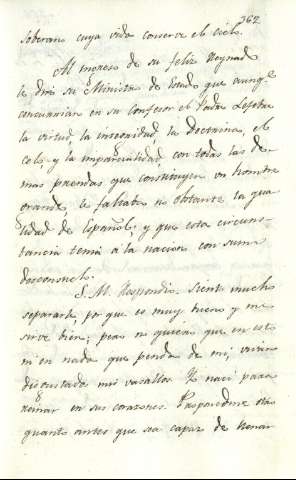 362
soberano cuya vida conserve el cielo.
Al ingreso de su feliz Reynado
le dixo su Ministro de Estado que aunqe.
concurrian en su Confesor el Padre Lefebre
la virtud, la sinceridad, la Doctrina, el
Celo y la imparcialidad, con todas las de-
mas prendas que constituyen un hombre
grande, le faltaba no obstante la qua-
lidad de Español; y que esta circuns-
tancia tenia á la nacion con sumo
desconsuelo.
S. M. Respondio. Siento mucho
separarle, por que es muy bueno y me
sirve bien; pero no quiero que en esto
ni en nada que penda de mi, vivan
disgustados mis vasallos. Yo nací para
reinar en sus corazones. Proponedme otro
quanto antes que sea capaz de llenar